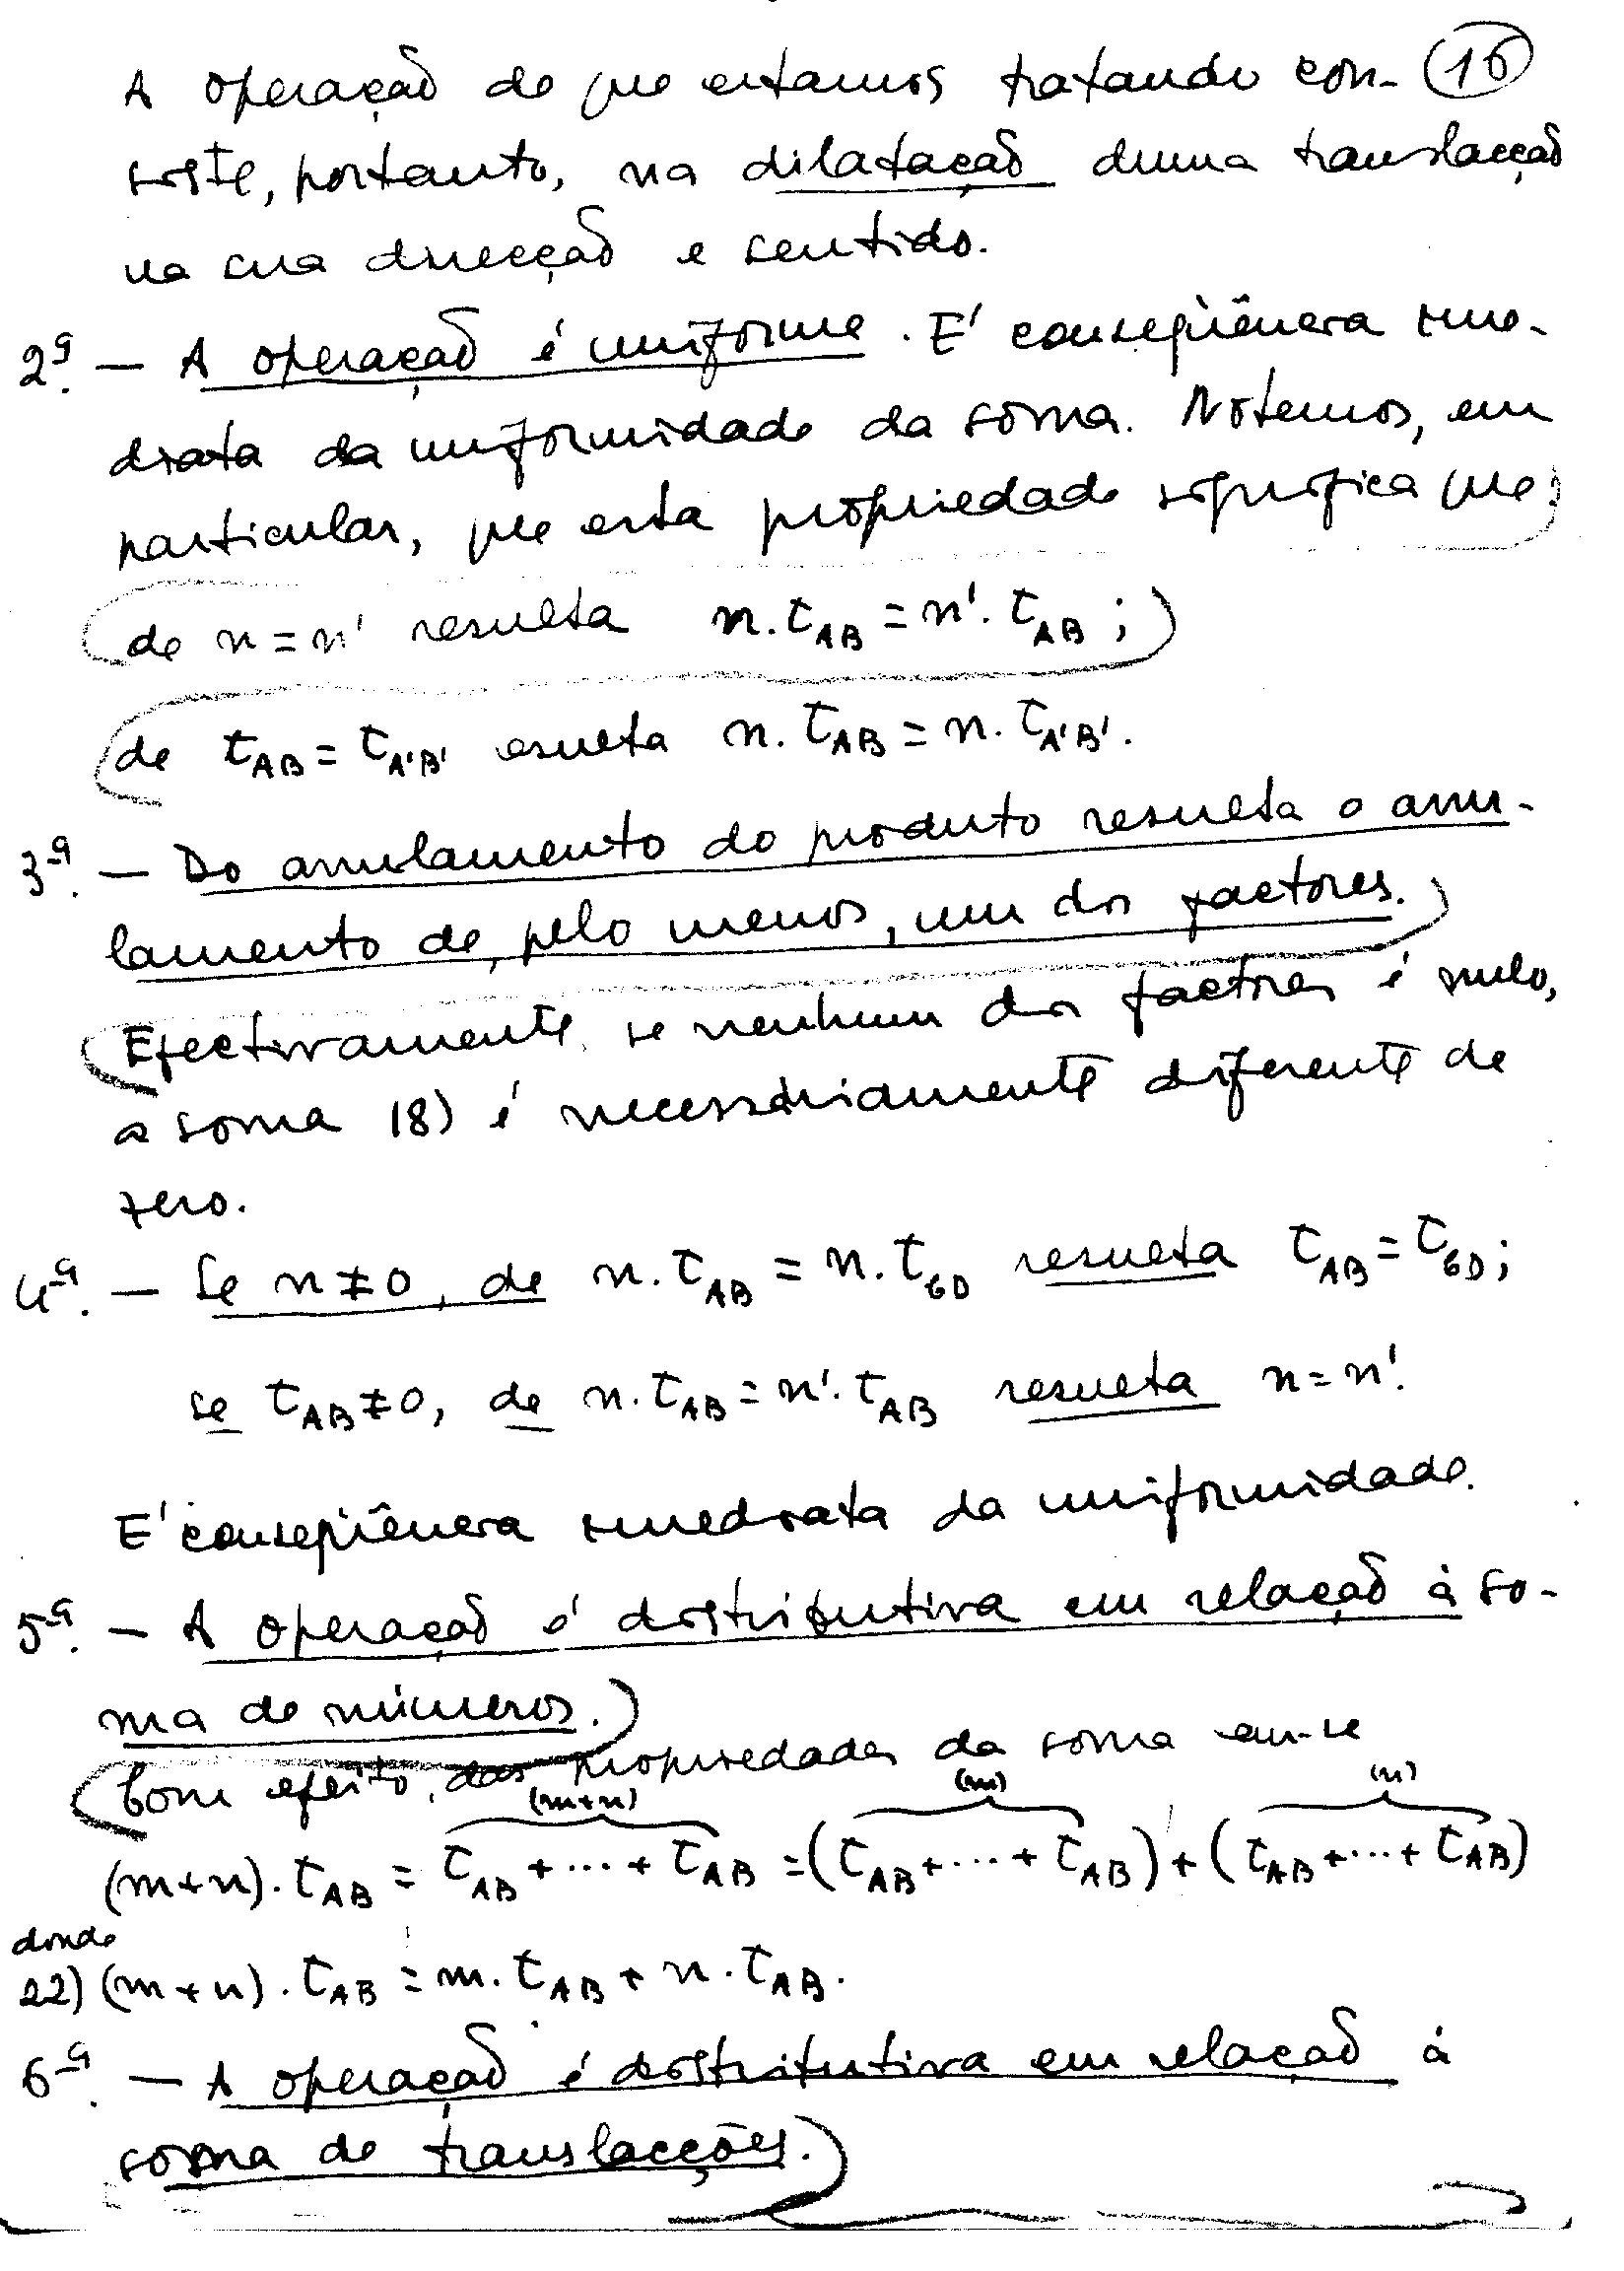 A operação de que estamos tratando con- 16
siste, portanto, na dilatação duma translacção
na sua direcção e sentido.
2ª. — A operação é uniforme. E' conseqüência ime-
diata da uniformidade da sôma. Notemos, em
particular, que esta propriedade significa que:
de n = n' resulta n.τ_AB = n'.τ_AB ;
de τ_AB = τ_A'B' resulta n.τ_AB = n.τ_A'B'.
3ª. — Do anulamento do produto resulta o anu-
lamento de, pelo menos, um dos factores.
Efectivamente, se nenhum dos factores é nulo,
a soma 18) é necessàriamente diferente de
zero.
4ª. — Se n ≠ 0, de n.τ_AB = n.τ_CD resulta τ_AB = τ_CD;
se τ_AB ≠ 0, de n.τ_AB = n'.τ_AB resulta n = n'.
E' conseqüência imediata da uniformidade.
5ª. — A operação é distributiva em relação à so-
ma de números.
Com efeito, das propriedades da soma tem-se
(m+n) (m) (n)
(m+n).τ_AB = τ_AB + ... + τ_AB = (τ_AB + ... + τ_AB) + (τ_AB + ... + τ_AB)
donde
22) (m+n).τ_AB = m.τ_AB + n.τ_AB.
6ª. — A operação é distributiva em relação à
soma de translacções.